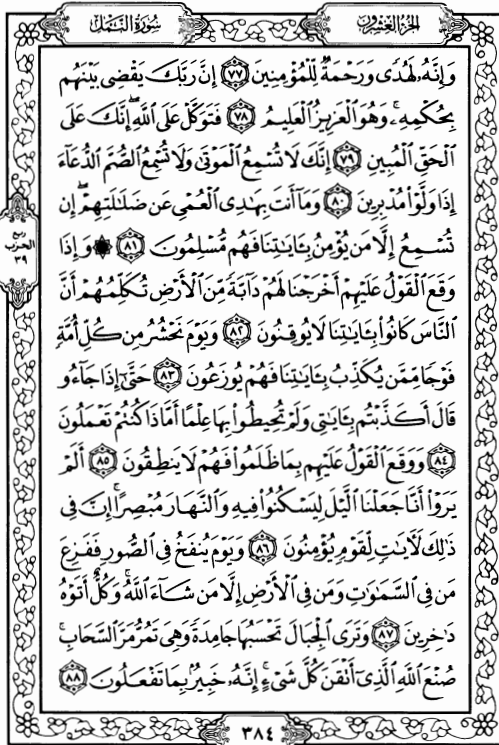 الجزء العشرون
سورة النمل
وَإِنَّهُۥ لَهُدًى وَرَحْمَةٌ لِّلْمُؤْمِنِينَ ٧٧ إِنَّ رَبَّكَ يَقْضِى بَيْنَهُم
بِحُكْمِهِۦ ۚ وَهُوَ ٱلْعَزِيزُ ٱلْعَلِيمُ ٧٨ فَتَوَكَّلْ عَلَى ٱللَّهِ ۖ إِنَّكَ عَلَى
ٱلْحَقِّ ٱلْمُبِينِ ٧٩ إِنَّكَ لَا تُسْمِعُ ٱلْمَوْتَىٰ وَلَا تُسْمِعُ ٱلصُّمَّ ٱلدُّعَآءَ
إِذَا وَلَّوْا۟ مُدْبِرِينَ ٨٠ وَمَآ أَنتَ بِهَٰدِى ٱلْعُمْىِ عَن ضَلَٰلَتِهِمْ ۖ إِن
تُسْمِعُ إِلَّا مَن يُؤْمِنُ بِـَٔايَٰتِنَا فَهُم مُّسْلِمُونَ ٨١ ۞ وَإِذَا
وَقَعَ ٱلْقَوْلُ عَلَيْهِمْ أَخْرَجْنَا لَهُمْ دَآبَّةً مِّنَ ٱلْأَرْضِ تُكَلِّمُهُمْ أَنَّ
ٱلنَّاسَ كَانُوا۟ بِـَٔايَٰتِنَا لَا يُوقِنُونَ ٨٢ وَيَوْمَ نَحْشُرُ مِن كُلِّ أُمَّةٍ
فَوْجًا مِّمَّن يُكَذِّبُ بِـَٔايَٰتِنَا فَهُمْ يُوزَعُونَ ٨٣ حَتَّىٰٓ إِذَا جَآءُو
قَالَ أَكَذَّبْتُم بِـَٔايَٰتِى وَلَمْ تُحِيطُوا۟ بِهَا عِلْمًا أَمَّاذَا كُنتُمْ تَعْمَلُونَ
٨٤ وَوَقَعَ ٱلْقَوْلُ عَلَيْهِم بِمَا ظَلَمُوا۟ فَهُمْ لَا يَنطِقُونَ ٨٥ أَلَمْ
يَرَوْا۟ أَنَّا جَعَلْنَا ٱلَّيْلَ لِيَسْكُنُوا۟ فِيهِ وَٱلنَّهَارَ مُبْصِرًا ۚ إِنَّ فِى
ذَٰلِكَ لَـَٔايَٰتٍ لِّقَوْمٍ يُؤْمِنُونَ ٨٦ وَيَوْمَ يُنفَخُ فِى ٱلصُّورِ فَفَزِعَ
مَن فِى ٱلسَّمَٰوَٰتِ وَمَن فِى ٱلْأَرْضِ إِلَّا مَن شَآءَ ٱللَّهُ ۚ وَكُلٌّ أَتَوْهُ
دَٰخِرِينَ ٨٧ وَتَرَى ٱلْجِبَالَ تَحْسَبُهَا جَامِدَةً وَهِىَ تَمُرُّ مَرَّ ٱلسَّحَابِ ۚ
صُنْعَ ٱللَّهِ ٱلَّذِىٓ أَتْقَنَ كُلَّ شَىْءٍ ۚ إِنَّهُۥ خَبِيرٌۢ بِمَا تَفْعَلُونَ ٨٨
ربع
الحزب
٣٩
٣٨٤